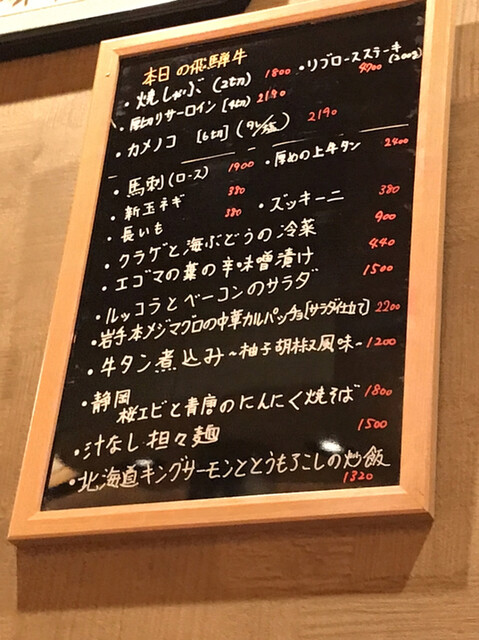 本日の飛騨牛
・焼しゃぶ (2切) 1800 ・リブロースステーキ (200g) 4700
・厚切りサーロイン [4切] 2190
・カメノコ [6切] (タレ/塩) 2190
・馬刺(ロース) 1900 ・厚めの上牛タン 2400
・新玉ネギ 380
・長いも 380 ・ズッキーニ 380
・クラゲと海ぶどうの冷菜 900
・エゴマの葉の辛味噌漬け 440
・ルッコラとベーコンのサラダ 1500
・岩手本メジマグロの中華カルパッチョ[サラダ仕立て] 2200
・牛タン煮込み~柚子胡椒風味~ 1200
・静岡
桜エビと青唐のにんにく焼そば 1800
・汁なし担々麺 1500
・北海道キングサーモンととうもろこしの炒飯
1320